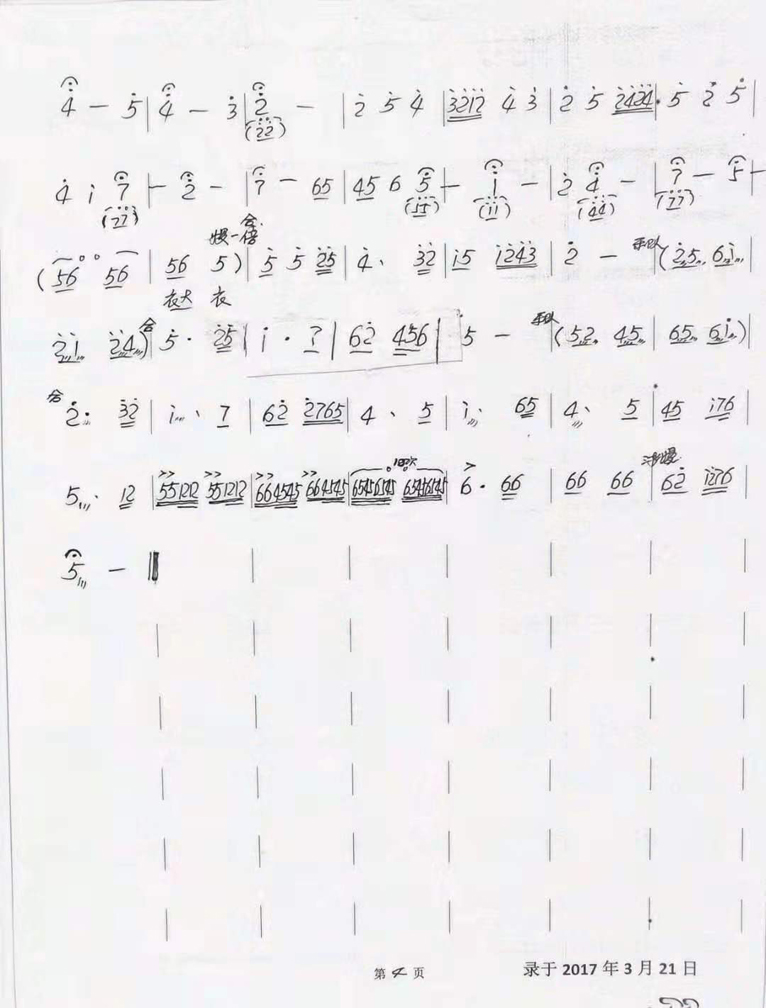 4 — 5 | 4 — 3 | 2 — | 2 5 4 | 3212 4 3 | 2 5 2424 · 5 2 5 |
(22)
4 i 7 | — 2 — | 7 — 65 | 45 6 5 | — i — | 2 4 — | 7 — 5 —
(77) (55) (11) (44) (77)
慢一倍 合
(56 56 | 56 5) | 5 5 25 | 4· 32 | i5 i243 | 2 — | (25 6i |
衣大 衣
2i 24) 合 | 5 · 25 | i · 7 | 62 456 | 5 — | (52 45 | 65 6i)
合 2· 32 | i· 7 | 62 2765 | 4 · 5 | i 65 | 4 · 5 | 45 i76 |
渐慢
5 · 12 | 551212 551212 | 664545 664545 | 65456545 65456545 | 6 · 66 | 66 66 | 62 i276 |
5 —
第 4 页 录于 2017 年 3 月 21 日